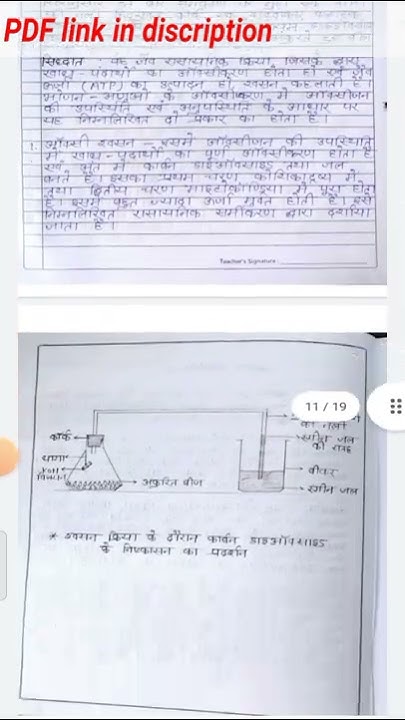 PDF link in discription
सिद्धांत : यह जैव रासायनिक क्रिया जिसके द्वारा
खाद्य-पदार्थों का ऑक्सीकरण होता है एवं जैव
ऊर्जा (ATP) का उत्पादन हो, श्वसन कहलाती है।
भोजन-अणुओं के ऑक्सीकरण में ऑक्सीजन
की उपस्थिति एवं अनुपस्थिति के आधार पर
यह निम्नलिखित दो प्रकार का होता है।
1. ऑक्सी श्वसन - इसमें ऑक्सीजन की उपस्थिति
में खाद्य-पदार्थों का पूर्ण ऑक्सीकरण होता है
एवं अंत में कार्बन डाईऑक्साइड तथा जल
बनते हैं। इसका प्रथम चरण कोशिकाद्रव्य में
तथा द्वितीय चरण माइटोकॉण्ड्रिया में पूरा होता
है। इसमें बहुत ज्यादा ऊर्जा मुक्त होती है। इसे
निम्नलिखित रासायनिक समीकरण द्वारा दर्शाया
जाता है।
Teacher's Signature :
11 / 19
की नली
कॉर्क
रंगीन जल
की सतह
धागा
KOH
विलयन
बीकर
अंकुरित बीज
रंगीन जल
* श्वसन क्रिया के दौरान कार्बन डाइऑक्साइड
के निष्कासन का प्रदर्शन